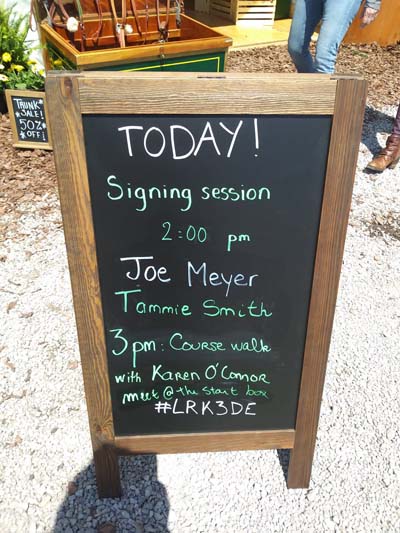 TODAY!
Signing session
2:00 pm
Joe Meyer
Tammie Smith
3pm: Course walk
with Karen O'Connor
meet @ the start box
#LRK3DE
TRUNK
SALE!
50%
OFF!